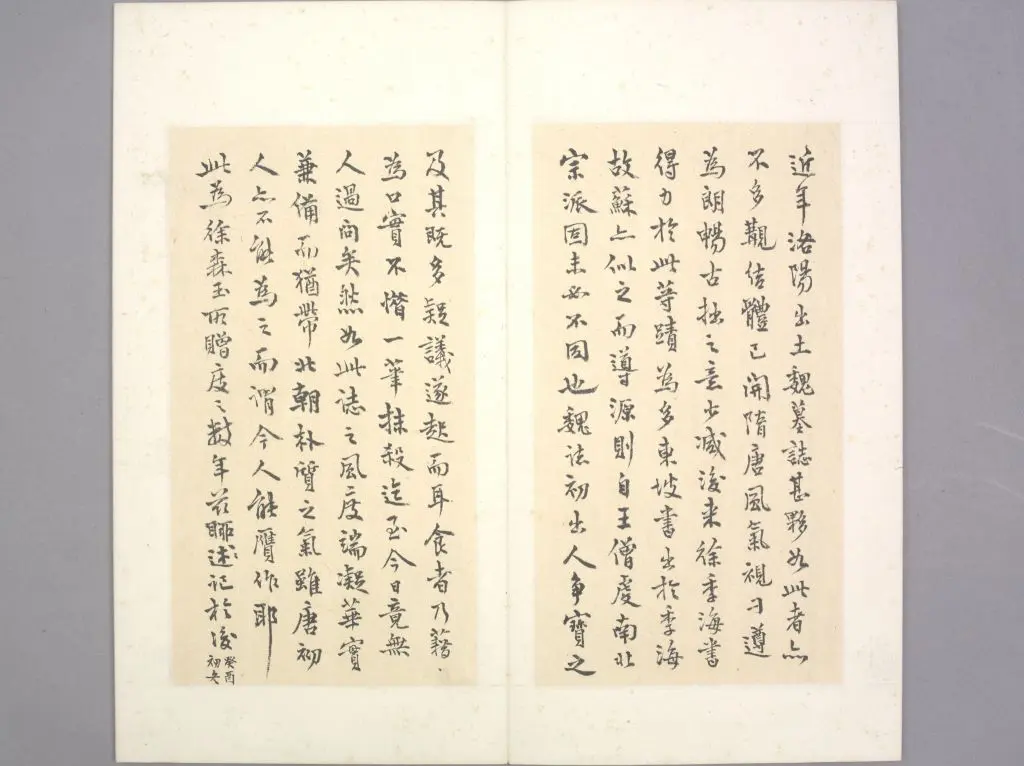 近年洛陽出土魏墓誌甚夥如此者亦
不多觏結體已開隋唐風氣視刁遵
為朗暢古拙之意少減後来徐季海書
得力於此等蹟為多東坡書出於季海
故蘇亦似之而導源則自王僧虔南北
宗派固未必不同也魏誌初出人争寶之
及其既多疑議遂起而耳食者乃藉、
為口實不惜一筆抹殺迄至今日竟無
人過問矣然如此誌之風度端凝華實
兼備而猶帶北朝朴質之氣雖唐初
人亦不能為之而謂今人能贋作耶
此為徐森玉所贈庋之數年兹略述記於後
癸酉
初冬